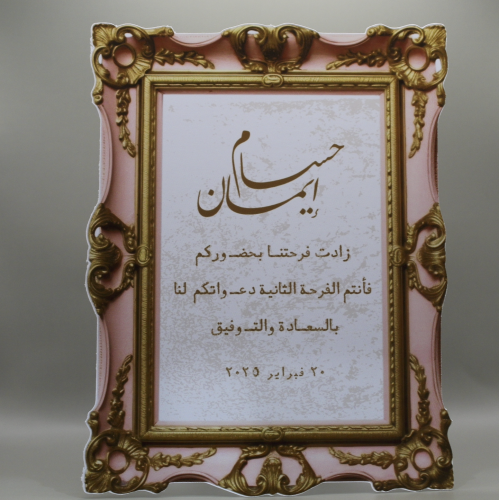 حسام
إيمان
زادت فرحتنا بحضوركم
فأنتم الفرحة الثانية دعواتكم لنا
بالسعادة والتوفيق
٢٠ فبراير ٢٠٢٥